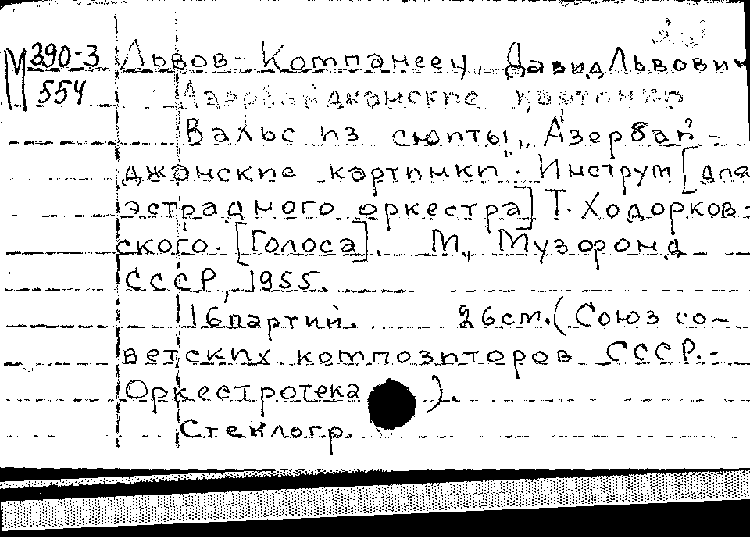 М 390-3
554
Львов-Компанеец, Давид Львович
Азербайджанские картинки
Вальс из сюиты „Азербай-
джанские картинки". Инструм [для
эстрадного оркестра] Т. Ходорков-
ского. [Голоса]. М., Музфонд
СССР, 1955.
16 партий. 26 см. (Союз со-
ветских композиторов СССР.-
Оркестротека ).
Стеклогр.